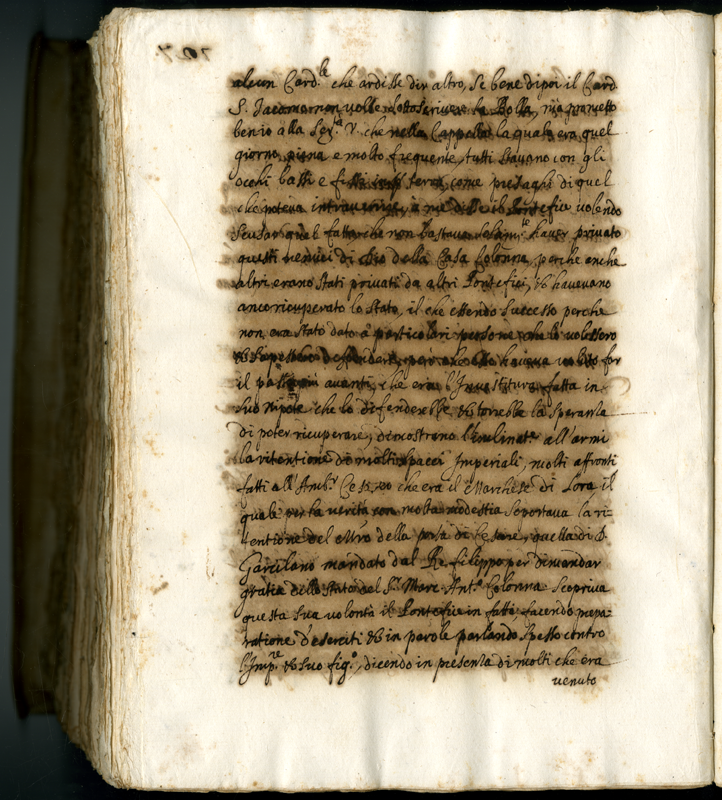 alcun Card.le che ardisse dir altro, se bene dipoi il Card.
S. Jacomo non volle sottoscrivere la Bolla, mà
ben io alla Ser.tà V. che nella Cappella la quale era quel
giorno piena e molto frequente, tutti stavano con gli
occhi bassi e fissi in terra, come presaghi di quel
che poteva intravenire, à me disse il Pontefice volendo
scusar quel fatto che non bastava haver privato
questi nemici di Dio della Casa Colonna, perche anche
altri erano stati privati da altri Pontefici, et havevano
anco ricuperato lo stato, il che essendo successo perche
non era stato dato à particolari persone che lo volessero
et sapessero defendere, però che esso haveva voluto far
il passo più avanti, che era l'Investitura fatta in
suo Nipote che lo difenderebbe et torrebbe la speranza
di poter ricuperare, dimostrano all'armi
la ritentione di molti spacci Imperiali, molti affronti
fatti all'Amb.r Cesareo che era il Marchese di
quale per la verità con molta modestia soportava la ri-
tentione del Mro della posta di Cesare, quella di D.
Garcilasso mandato dal Re Filippo per dimandar
gratia dello stato del S.r Marc. Ant.o Colonna scopriva
questa sua volontà il Pontefice in fatto, facendo prepa-
ratione d'eserciti et in parole parlando spesso contro
l'Imp.re et suo fig.o, dicendo in presenza di molti che era
venuto